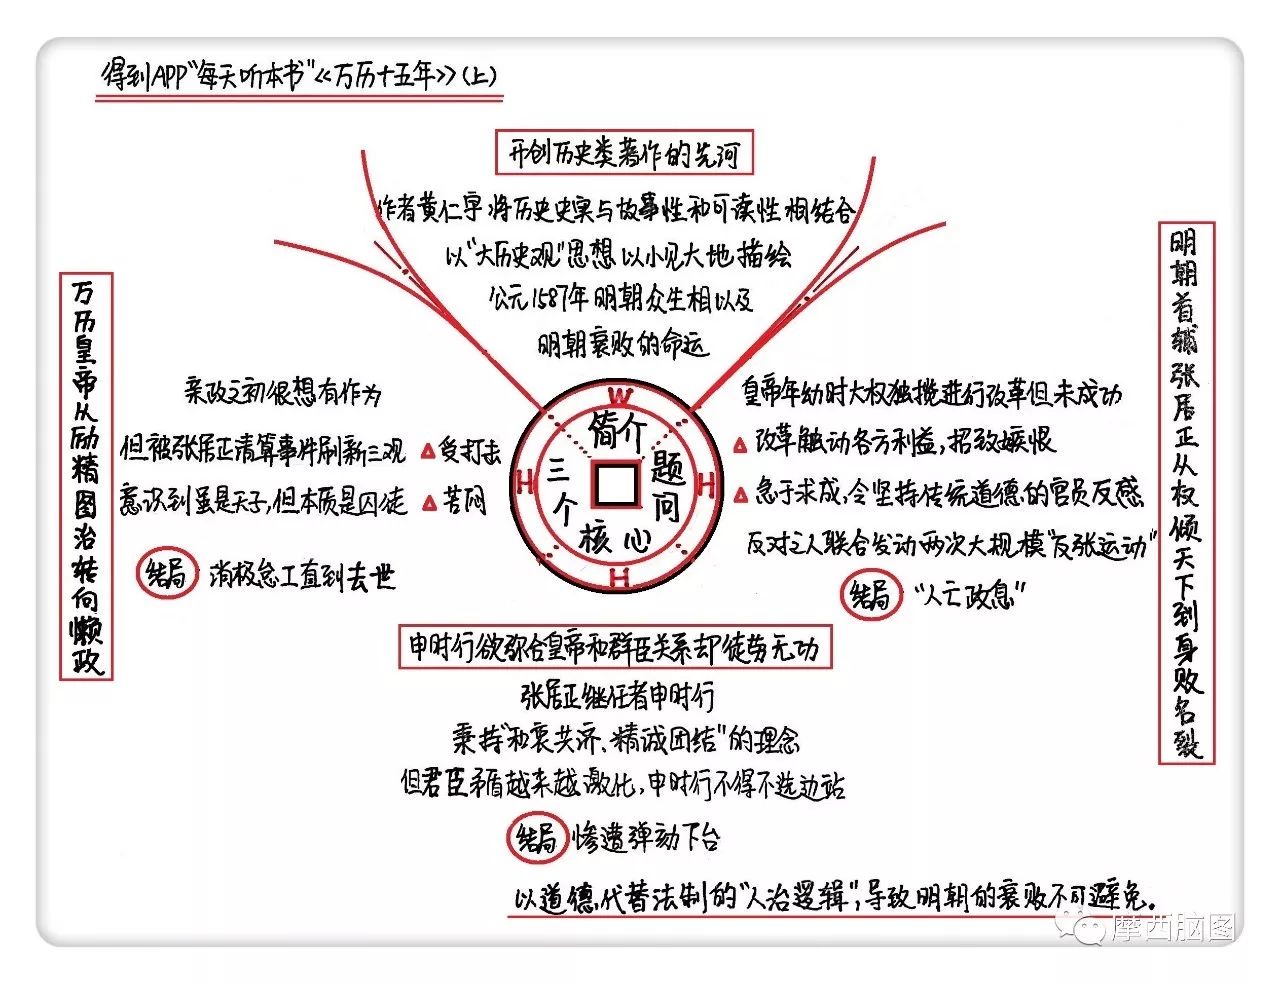 得到APP“每天听本书”《万历十五年》(上)
开创历史类著作的先河
作者黄仁宇将历史史实与故事性和可读性相结合
以“大历史观”思想以小见大地描绘
公元1587年明朝众生相以及
明朝衰败的命运
万历皇帝从励精图治转向懒政
亲政之初很想有作为
但被张居正清算事件刷新三观 △受打击
意识到虽是天子,但本质是囚徒 △苦闷
结局 消极怠工直到去世
W
简介
H
三个
核心
问题
H
H
皇帝年幼时大权独揽进行改革但未成功
△改革触动各方利益,招致嫉恨
△急于求成,令坚持传统道德的官员反感
反对之人联合发动两次大规模“反张运动”
结局 “人亡政息”
明朝首辅张居正从权倾天下到身败名裂
申时行欲弥合皇帝和群臣关系却徒劳无功
张居正继任者申时行
秉持“和衷共济、精诚团结”的理念
但君臣矛盾越来越激化,申时行不得不选边站
结局 惨遭弹劾下台
以道德代替法制的“人治逻辑”,导致明朝的衰败不可避免。
摩西脑图